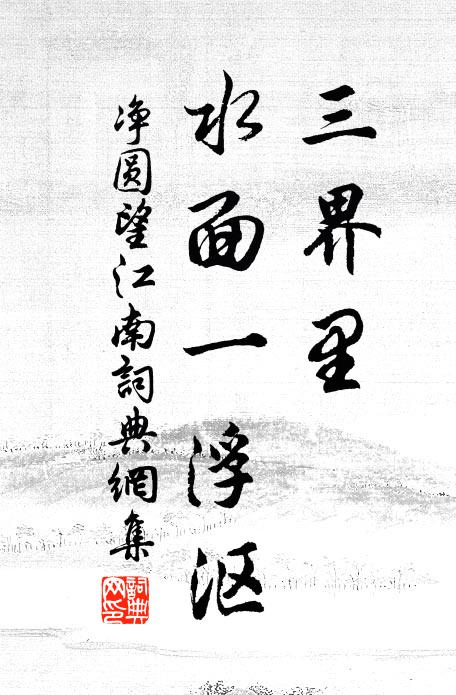 三界里
水面一浮沤
净圆望江南詞典網集
詞典网印